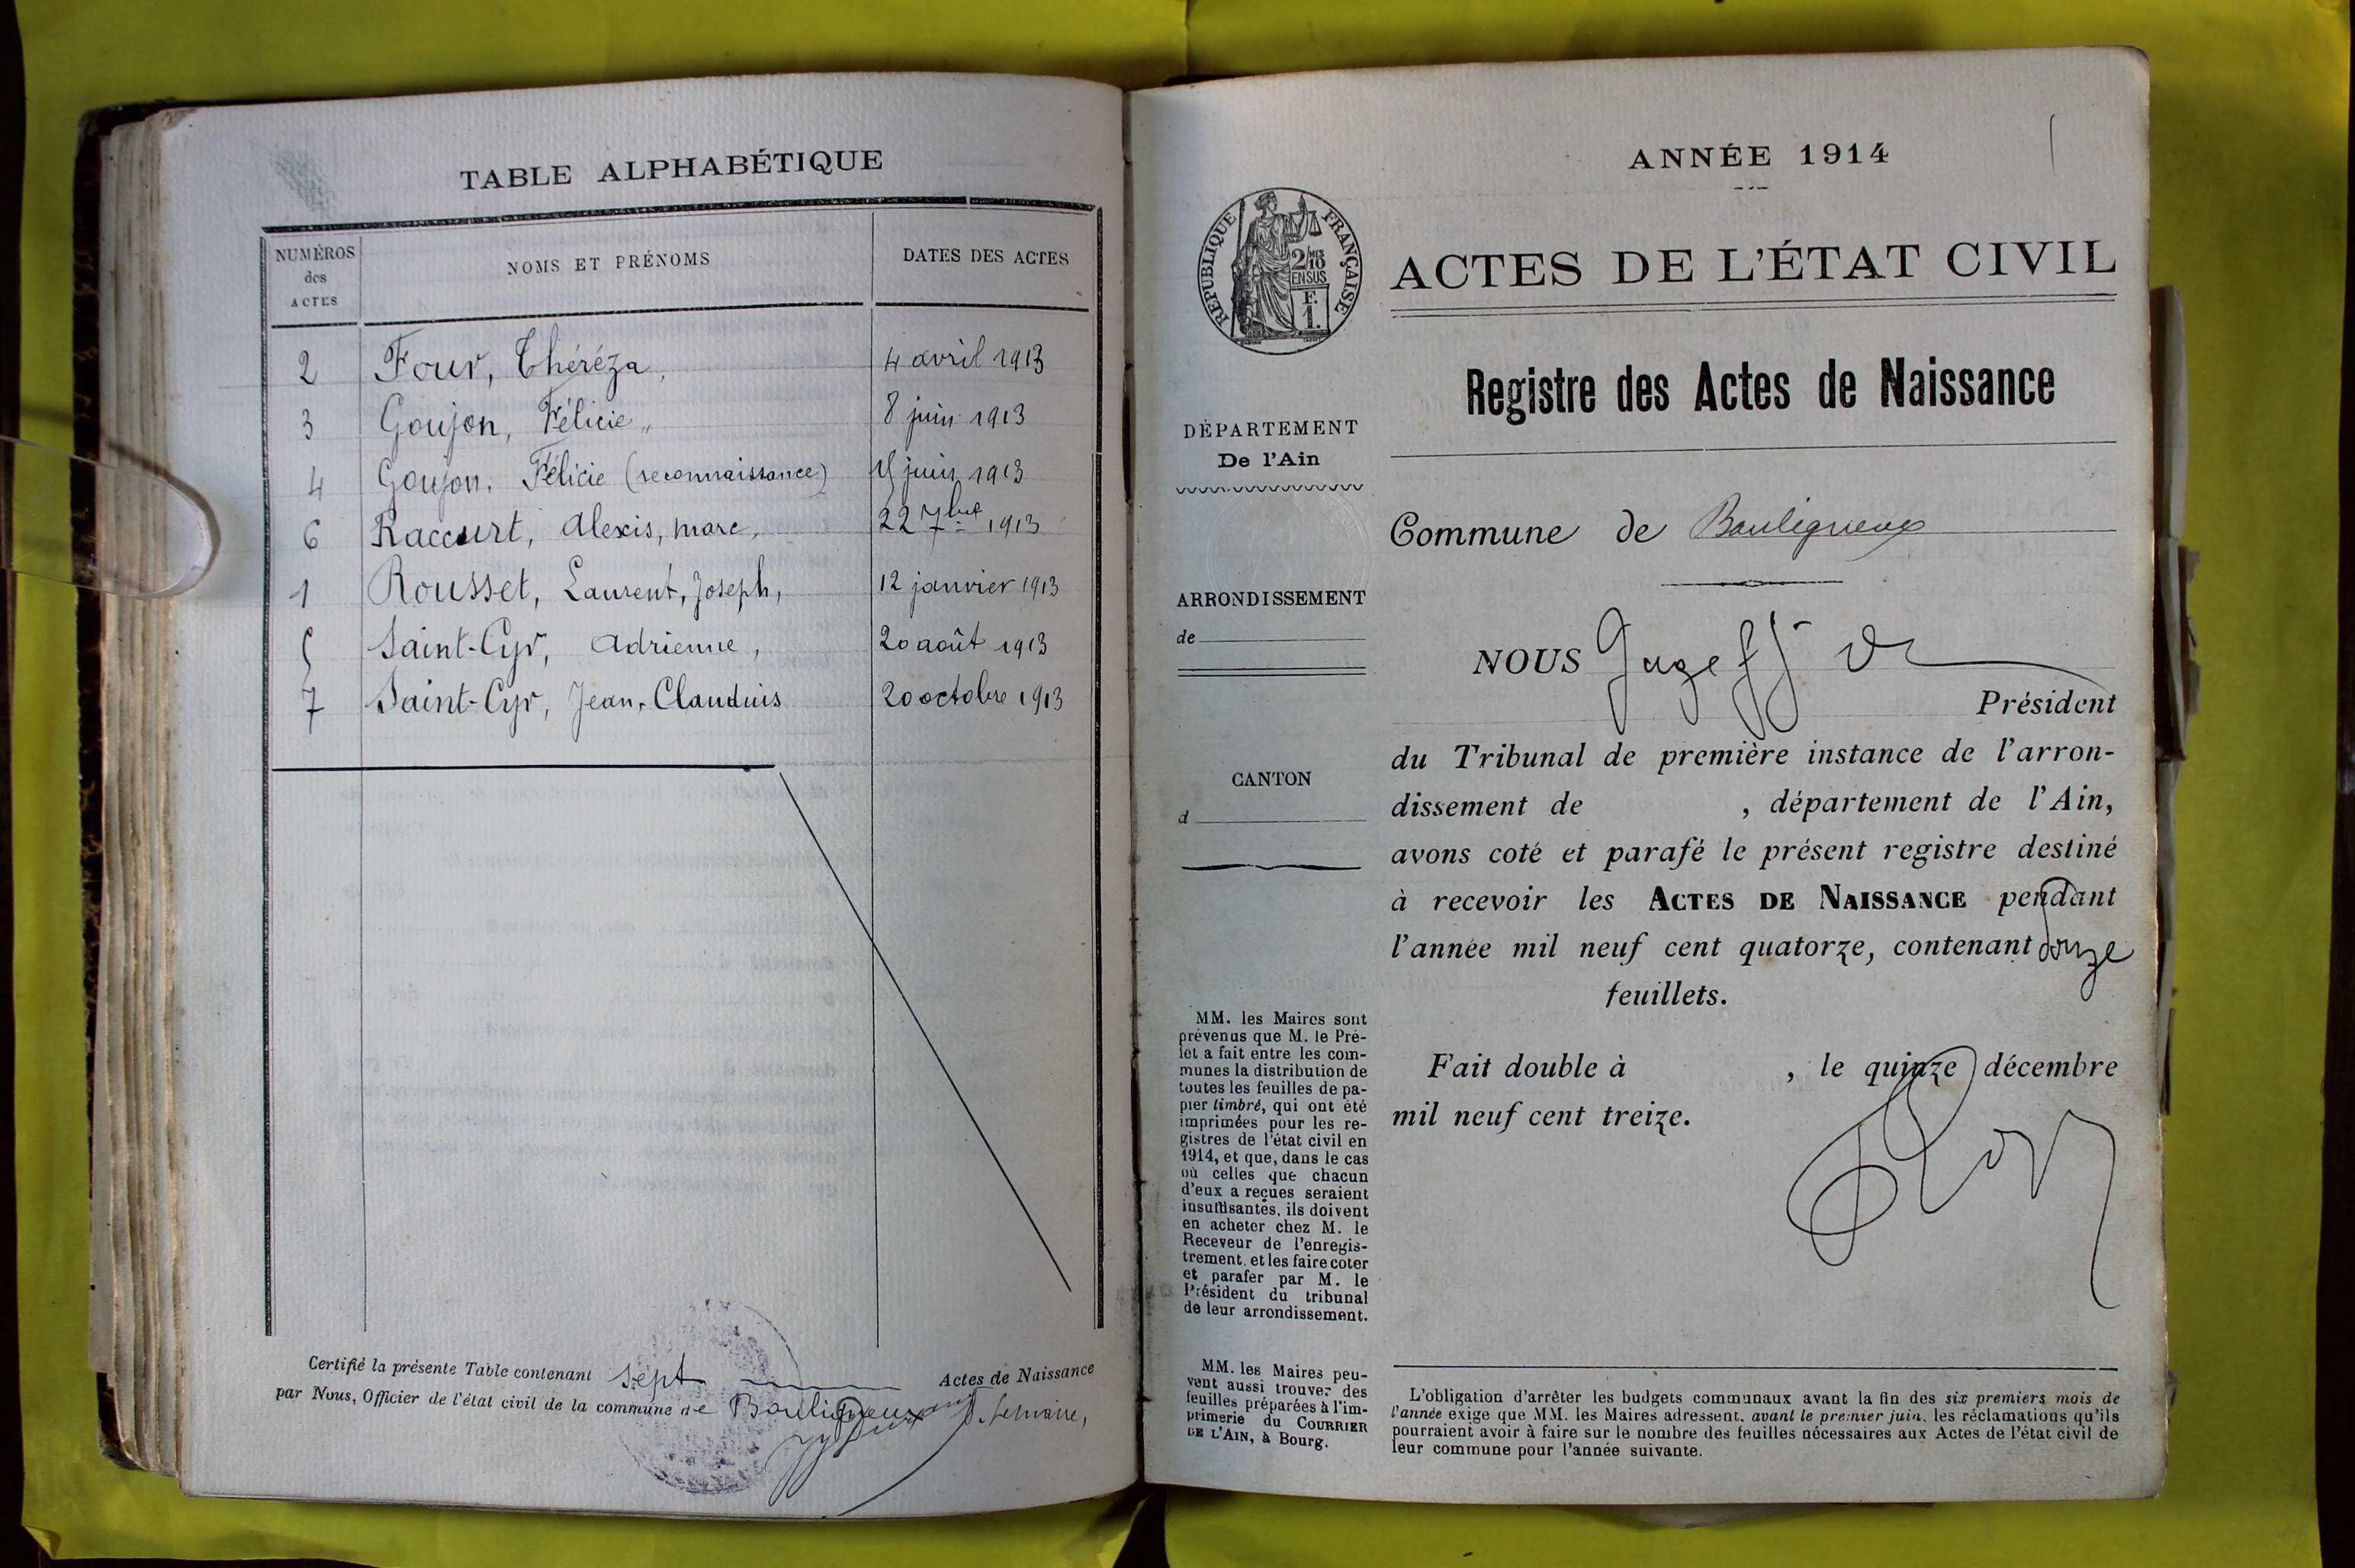 TABLE ALPHABÉTIQUE
NUMÉROS des ACTES
NOMS ET PRÉNOMS
DATES DES ACTES
2 Four, Théréza, 4 avril 1913
3 Goujon, Félicie, 8 juin 1913
4 Goujon. Félicie (reconnaissance) 15 juin 1913
6 Raccurt, Alexis, marc, 22 7bre 1913
1 Rousset, Laurent, Joseph, 12 janvier 1913
5 Saint-Cyr, Adrienne, 20 août 1913
7 Saint-Cyr, Jean, Claudius 20 octobre 1913
Certifié la présente Table contenant sept Actes de Naissance
par Nous, Officier de l'état civil de la commune de Bouligneux
ANNÉE 1914
RÉPUBLIQUE FRANÇAISE
2/10 EN SUS
F.
1.
ACTES DE L'ÉTAT CIVIL
Registre des Actes de Naissance
DÉPARTEMENT
De l'Ain
Commune de Bouligneux
ARRONDISSEMENT
de
NOUS Juge
Président
CANTON
d
du Tribunal de première instance de l'arron-
dissement de , département de l'Ain,
avons coté et parafé le présent registre destiné
à recevoir les ACTES DE NAISSANCE pendant
l'année mil neuf cent quatorze, contenant douze
feuillets.
Fait double à , le quinze décembre
mil neuf cent treize.
MM. les Maires sont
prévenus que M. le Pré-
fet a fait entre les com-
munes la distribution de
toutes les feuilles de pa-
pier timbré, qui ont été
imprimées pour les re-
gistres de l'état civil en
1914, et que, dans le cas
où celles que chacun
d'eux a reçues seraient
insuffisantes, ils doivent
en acheter chez M. le
Receveur de l'enregis-
trement, et les faire coter
et parafer par M. le
Président du tribunal
de leur arrondissement.
MM. les Maires peu-
vent aussi trouver des
feuilles préparées à l'im-
primerie du COURRIER
DE L'AIN, à Bourg.
L'obligation d'arrêter les budgets communaux avant la fin des six premiers mois de
l'année exige que MM. les Maires adressent, avant le premier juin, les réclamations qu'ils
pourraient avoir à faire sur le nombre des feuilles nécessaires aux Actes de l'état civil de
leur commune pour l'année suivante.